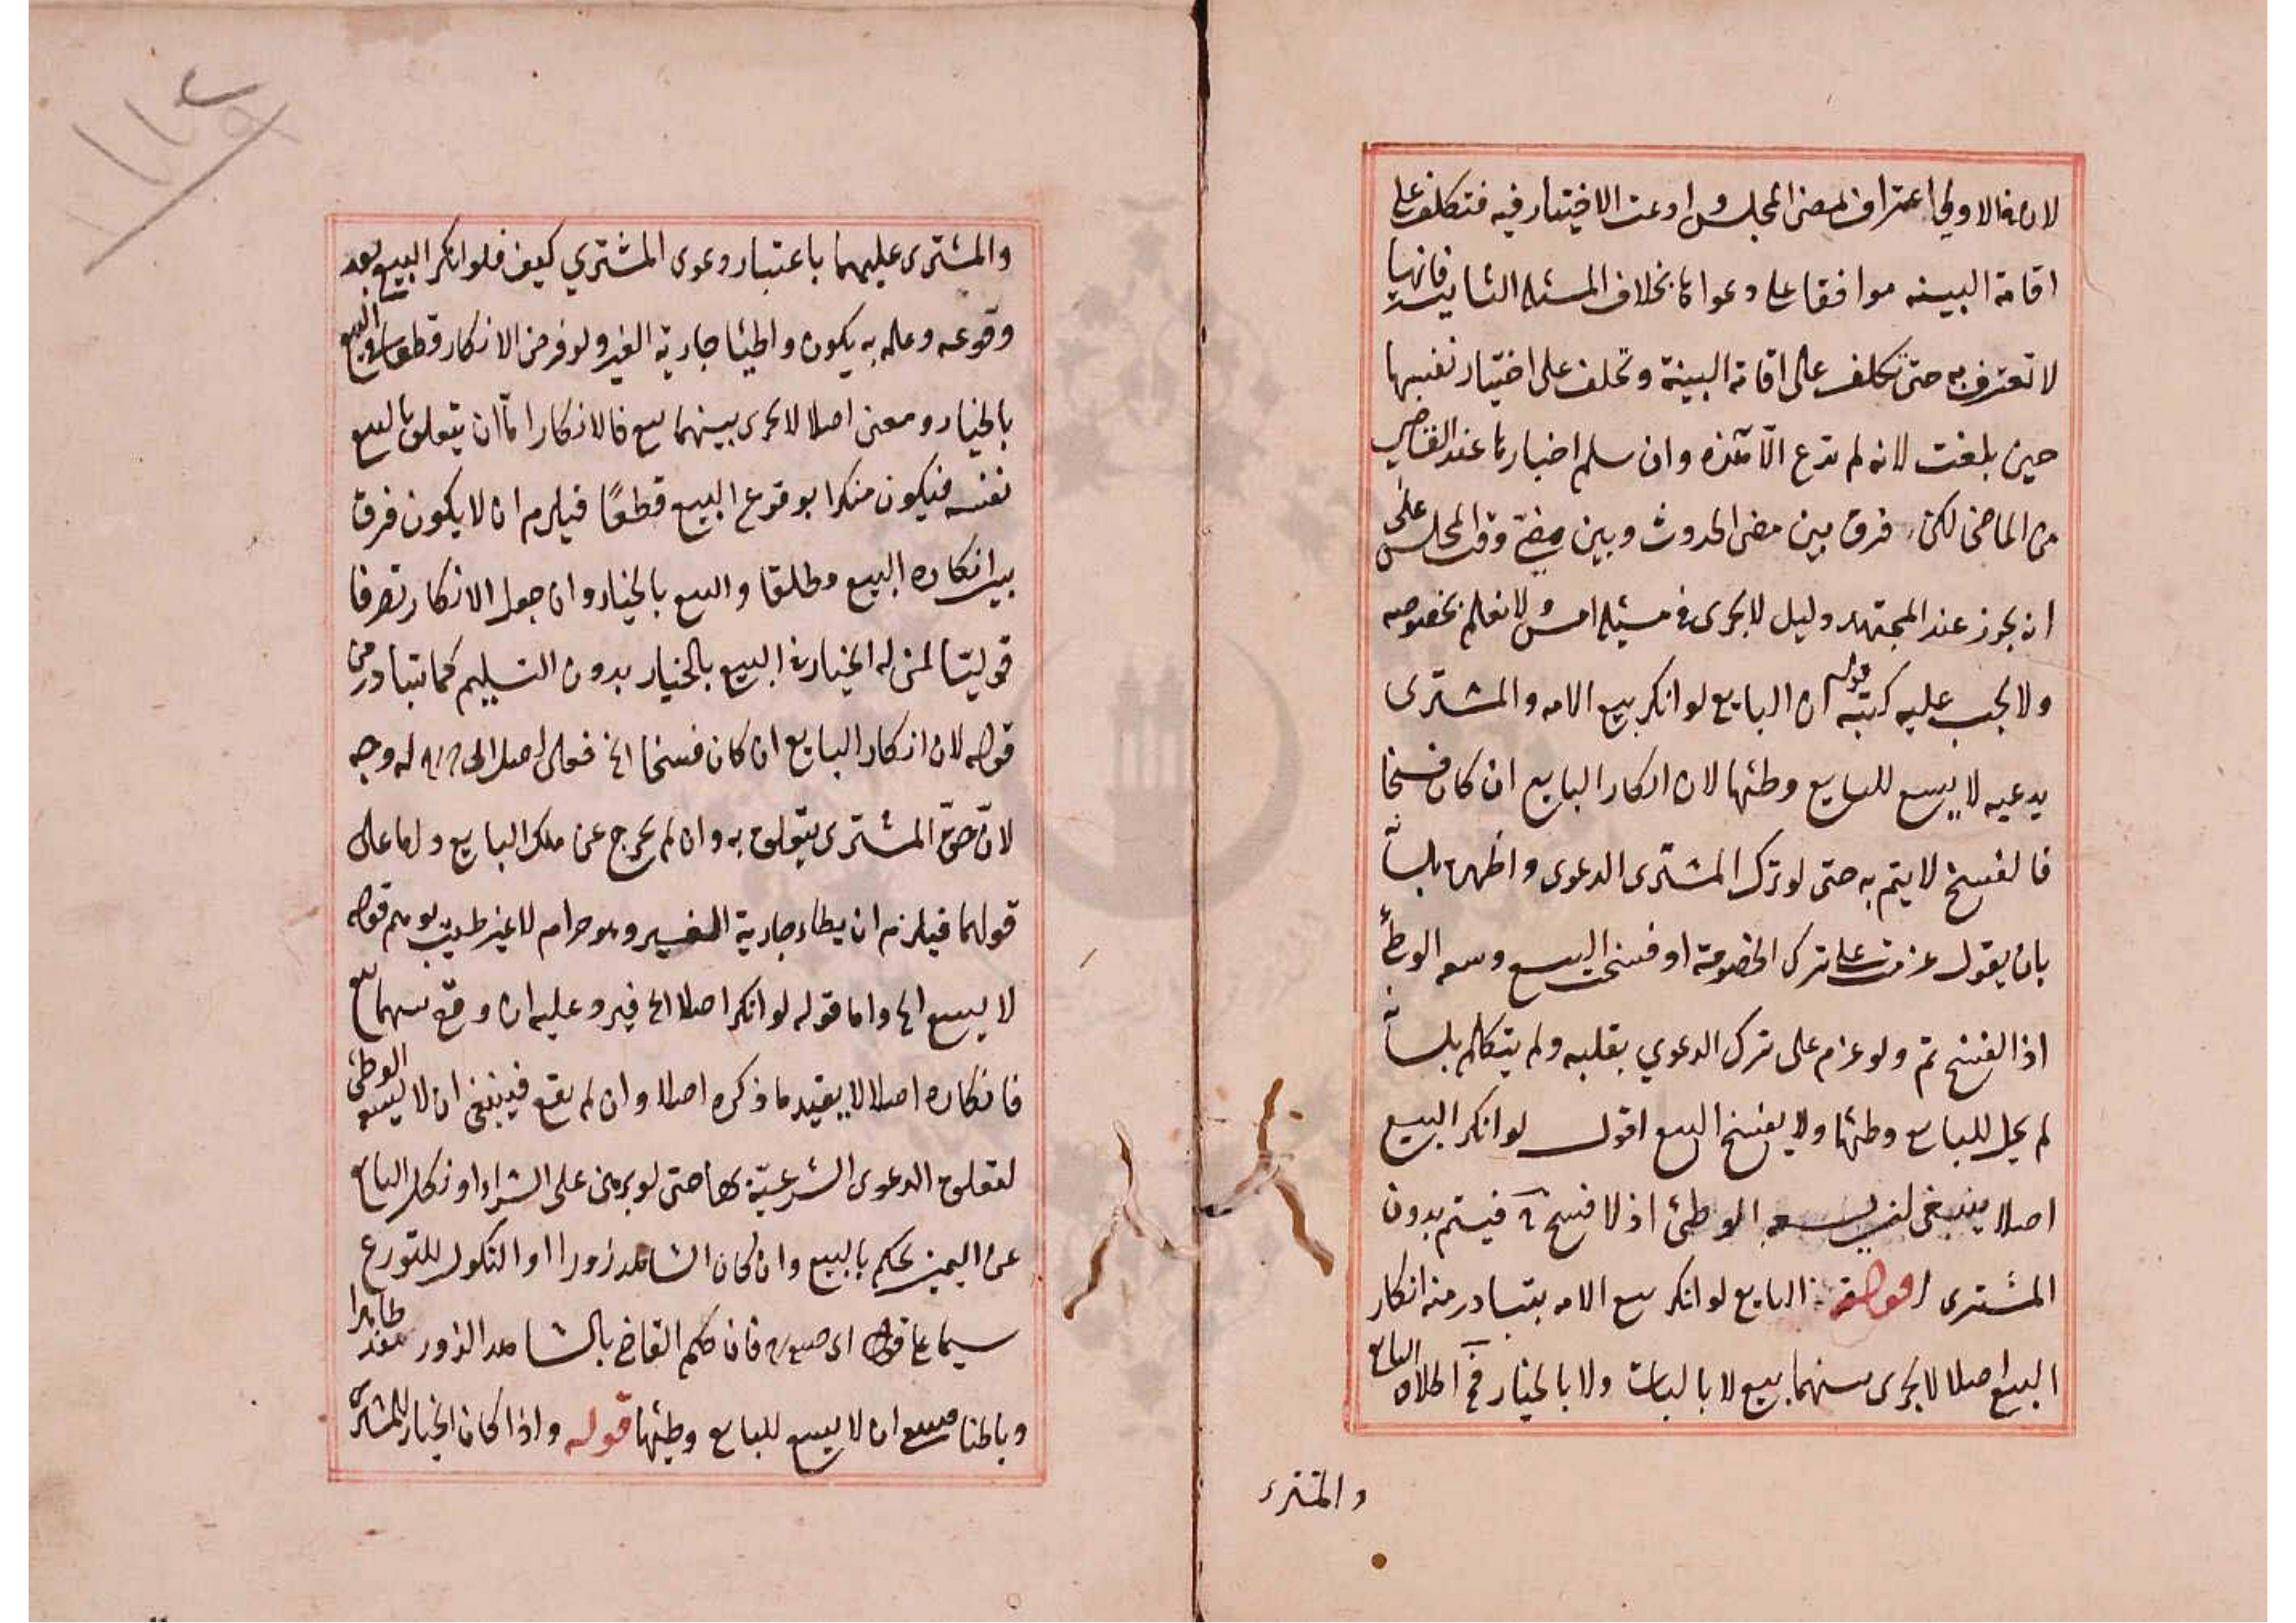 لان فى الاولى اعترافا لمضى المجلس وادعت الاختيار فيه فتكلف على
اقامة البينه موافقا على دعواها بخلاف المسئله الثانيه فانها
لا تعترف به حتى تكلف على اقامة البينة وتحلف على اختيار نفسها
حين بلغت لانه لم تدع الا هذه وان سلم اخبارها عند القاضى
من الماضى لكن فرق بين مضى الحدوث وبين مضى وقت المجلس على
ان يجوز عند المجتهد دليل لا يجرى فى مسئله امس ولا نعلم بخصوصه
ولا يجب عليه كتبه قوله ان البايع لو انكر بيع الامه والمشترى
يدعيه لا يسع للبايع وطئها لان انكار البايع ان كان فسخا
فالفسخ لا يتم به حتى لو ترك المشترى الدعوى واظهره بلسانه
بان يقول عزمت على ترك الخصومة او فسخت البيع وسعه الوطئ
اذ الفسخ تم ولو عزم على ترك الدعوي بقلبه ولم يتكلم بلسانه
لم يحل للبايع وطئها ولا يفسخ البيع اقول لو انكر البيع
اصلا ينبغى ان يسعه الوطئ اذ لا فسخ فيتم بدون
المشترى البايع لو انكر بيع الامه يتبادر منه انكار
البيع اصلا لا يجرى بينهما بيع لا بالبات ولا بالخيار البايع
والمشترى
والمشترى عليهما باعتبار دعوى المشتري كيف فلو انكر البيع بعد
وقوعه وعلمه به يكون واطيئا جارية الغير ولو فرض الانكار قطعا البيع
بالخيار ومعنى اصلا لا يجرى بينهما بيع فالانكار اما ان يتعلق بالبيع
نفسه فيكون منكرا بوقوع البيع قطعًا فيلزم ان لا يكون فرق
بين انكاره البيع مطلقا والبيع بالخيار وان جعل الانكار تصرفا
قوليتا لمن له الخيار فى البيع بالخيار بدون التسليم كما يتبادر من
قوله لان انكار البايع ان كان فسخا الخ فعلى اصل له وجه
لان حق المشترى يتعلق به وان لم يخرج عن ملك البايع واما على
قولهما فيلزم ان يطاء جارية الغير وهو حرام لا غير طيب قوله
لا يسع الخ واما قوله لو انكر اصلا الخ فيرد عليه ان وقع بينهما بيع
فانكاره اصلا لا يفيد ما ذكره اصلا وان لم يقع فينبغى ان لا يسعه الوطئ
لتعلق الدعوى الشرعية بها حتى لو برهن على الشراء او نكل البايع
عن اليمين يحكم بالبيع وان كان الشاهد زورا او النكول للتورع
سيما على قول ابى حنيفة فان حكم القاضى بالشاهد الزور ينفذ ظاهرا
وباطنا فينبغى ان لا يسع للبايع وطئها قوله واذا كان الخيار للمشترى